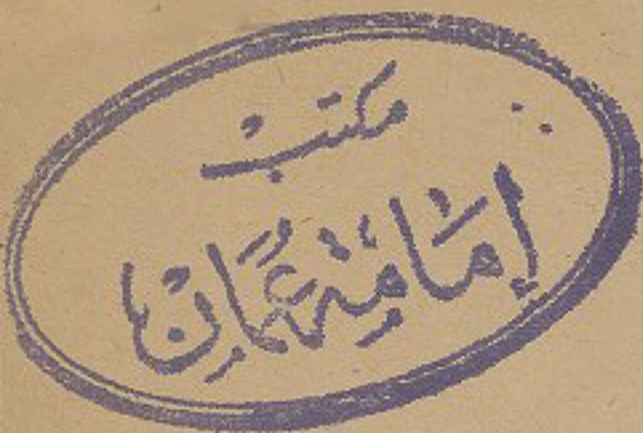 مكتب
إمامة عمان